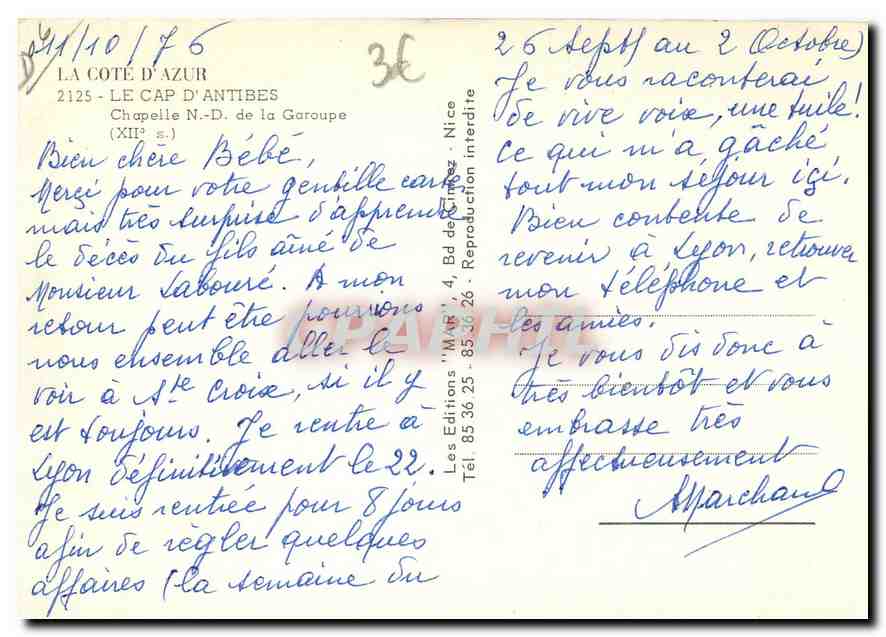 11/10/76
3€
LA COTE D'AZUR
2125 - LE CAP D'ANTIBES
Chapelle N.-D. de la Garoupe
(XIIe s.)
Bien chère Bébé,
Merçi pour votre gentille carte,
mais très surprise d'apprendre
le décès du fils aîné de
Monsieur Labouré. A mon
retour peut être pourrions
nous ensemble aller le
voir à Ste Croix, si il y
est toujours. Je rentre à
Lyon définitivement le 22.
Je suis rentrée pour 8 jours
afin de règler quelques
affaires (la semaine du
Les Editions "MAR", 4, Bd de Cimiez - Nice
Tél. 85 36 25 - 85 36 26 - Reproduction interdite
26 Sept au 2 Octobre)
Je vous raconterai
de vive voix, une tuile!
ce qui m'a gâché
tout mon séjour içi.
Bien contente de
revenir à Lyon, retrouver
mon téléphone et
les amies.
Je vous dis donc à
très bientôt et vous
embrasse très
affectueusement
AMarchand
CPARAMA